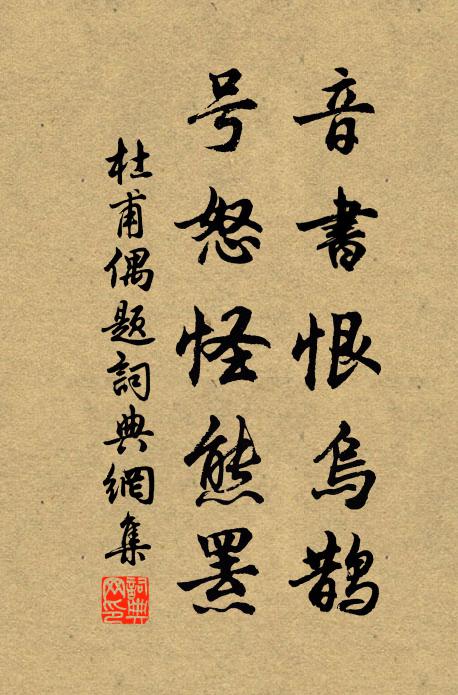 音書恨烏鵲
号怒怪熊羆
杜甫偶題詞典網集
詞典网印